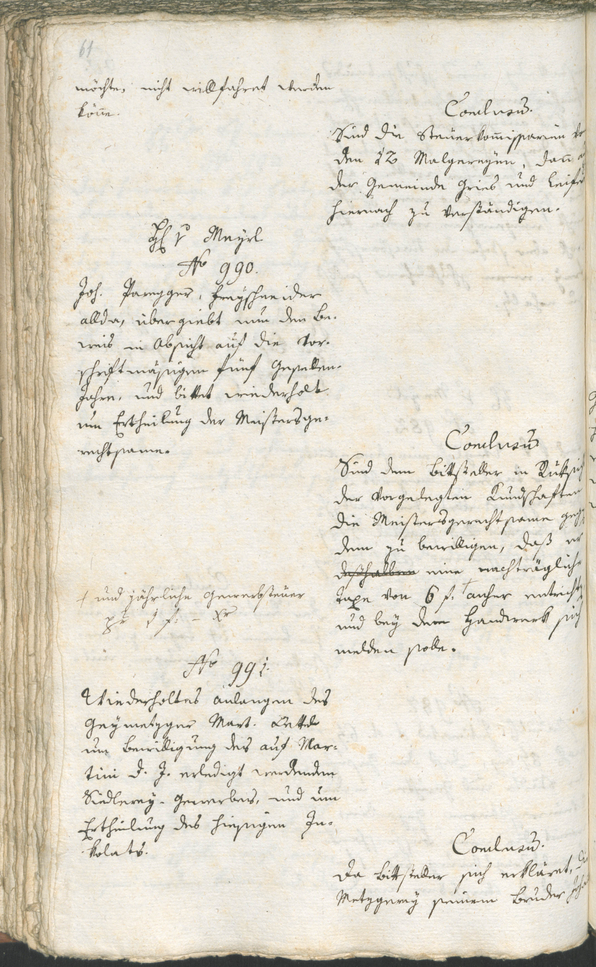 61
möchte, nicht willfahret werden
könne.
Conclusum.
Sind die Steuerkommissarien
den 12 Malgereyen, dann
der Gemeinde Gries und Leif
hiernach zu verständigen.
Mayrl
No 990.
Joh. Paregger,
allda, übergiebt nun den Be-
weis in Absicht auf die vor-
schriftmäsigen fünf Gesellen-
Jahre, und bittet wiederholt
um Ertheilung der Meistersge-
rechtsame.
Conclusum
Sind dem Bittsteller in Rüksich
der vorgelegten Kundschaften
die Meistersgerechtsame geg
dem zu bewilligen, daß er
deßhalben eine nachträgliche
Taxe von 6 f. + anher entricht
und bey dem Handwerk sich
melden solle.
+ und jährliche Gewerbsteuer
pr 1 f. – xr
No 991.
Wiederholtes Anlangen des
Geymetzger Mart.
um Bewilligung des auf Mar-
tini d. J. erledigt werdenden
Sudlerey-Gewerbes, und um
Ertheilung des hiesigen In-
kolats.
Conclusum.
Da Bittsteller sich erkläret,
Metzgerey seinem Bruder